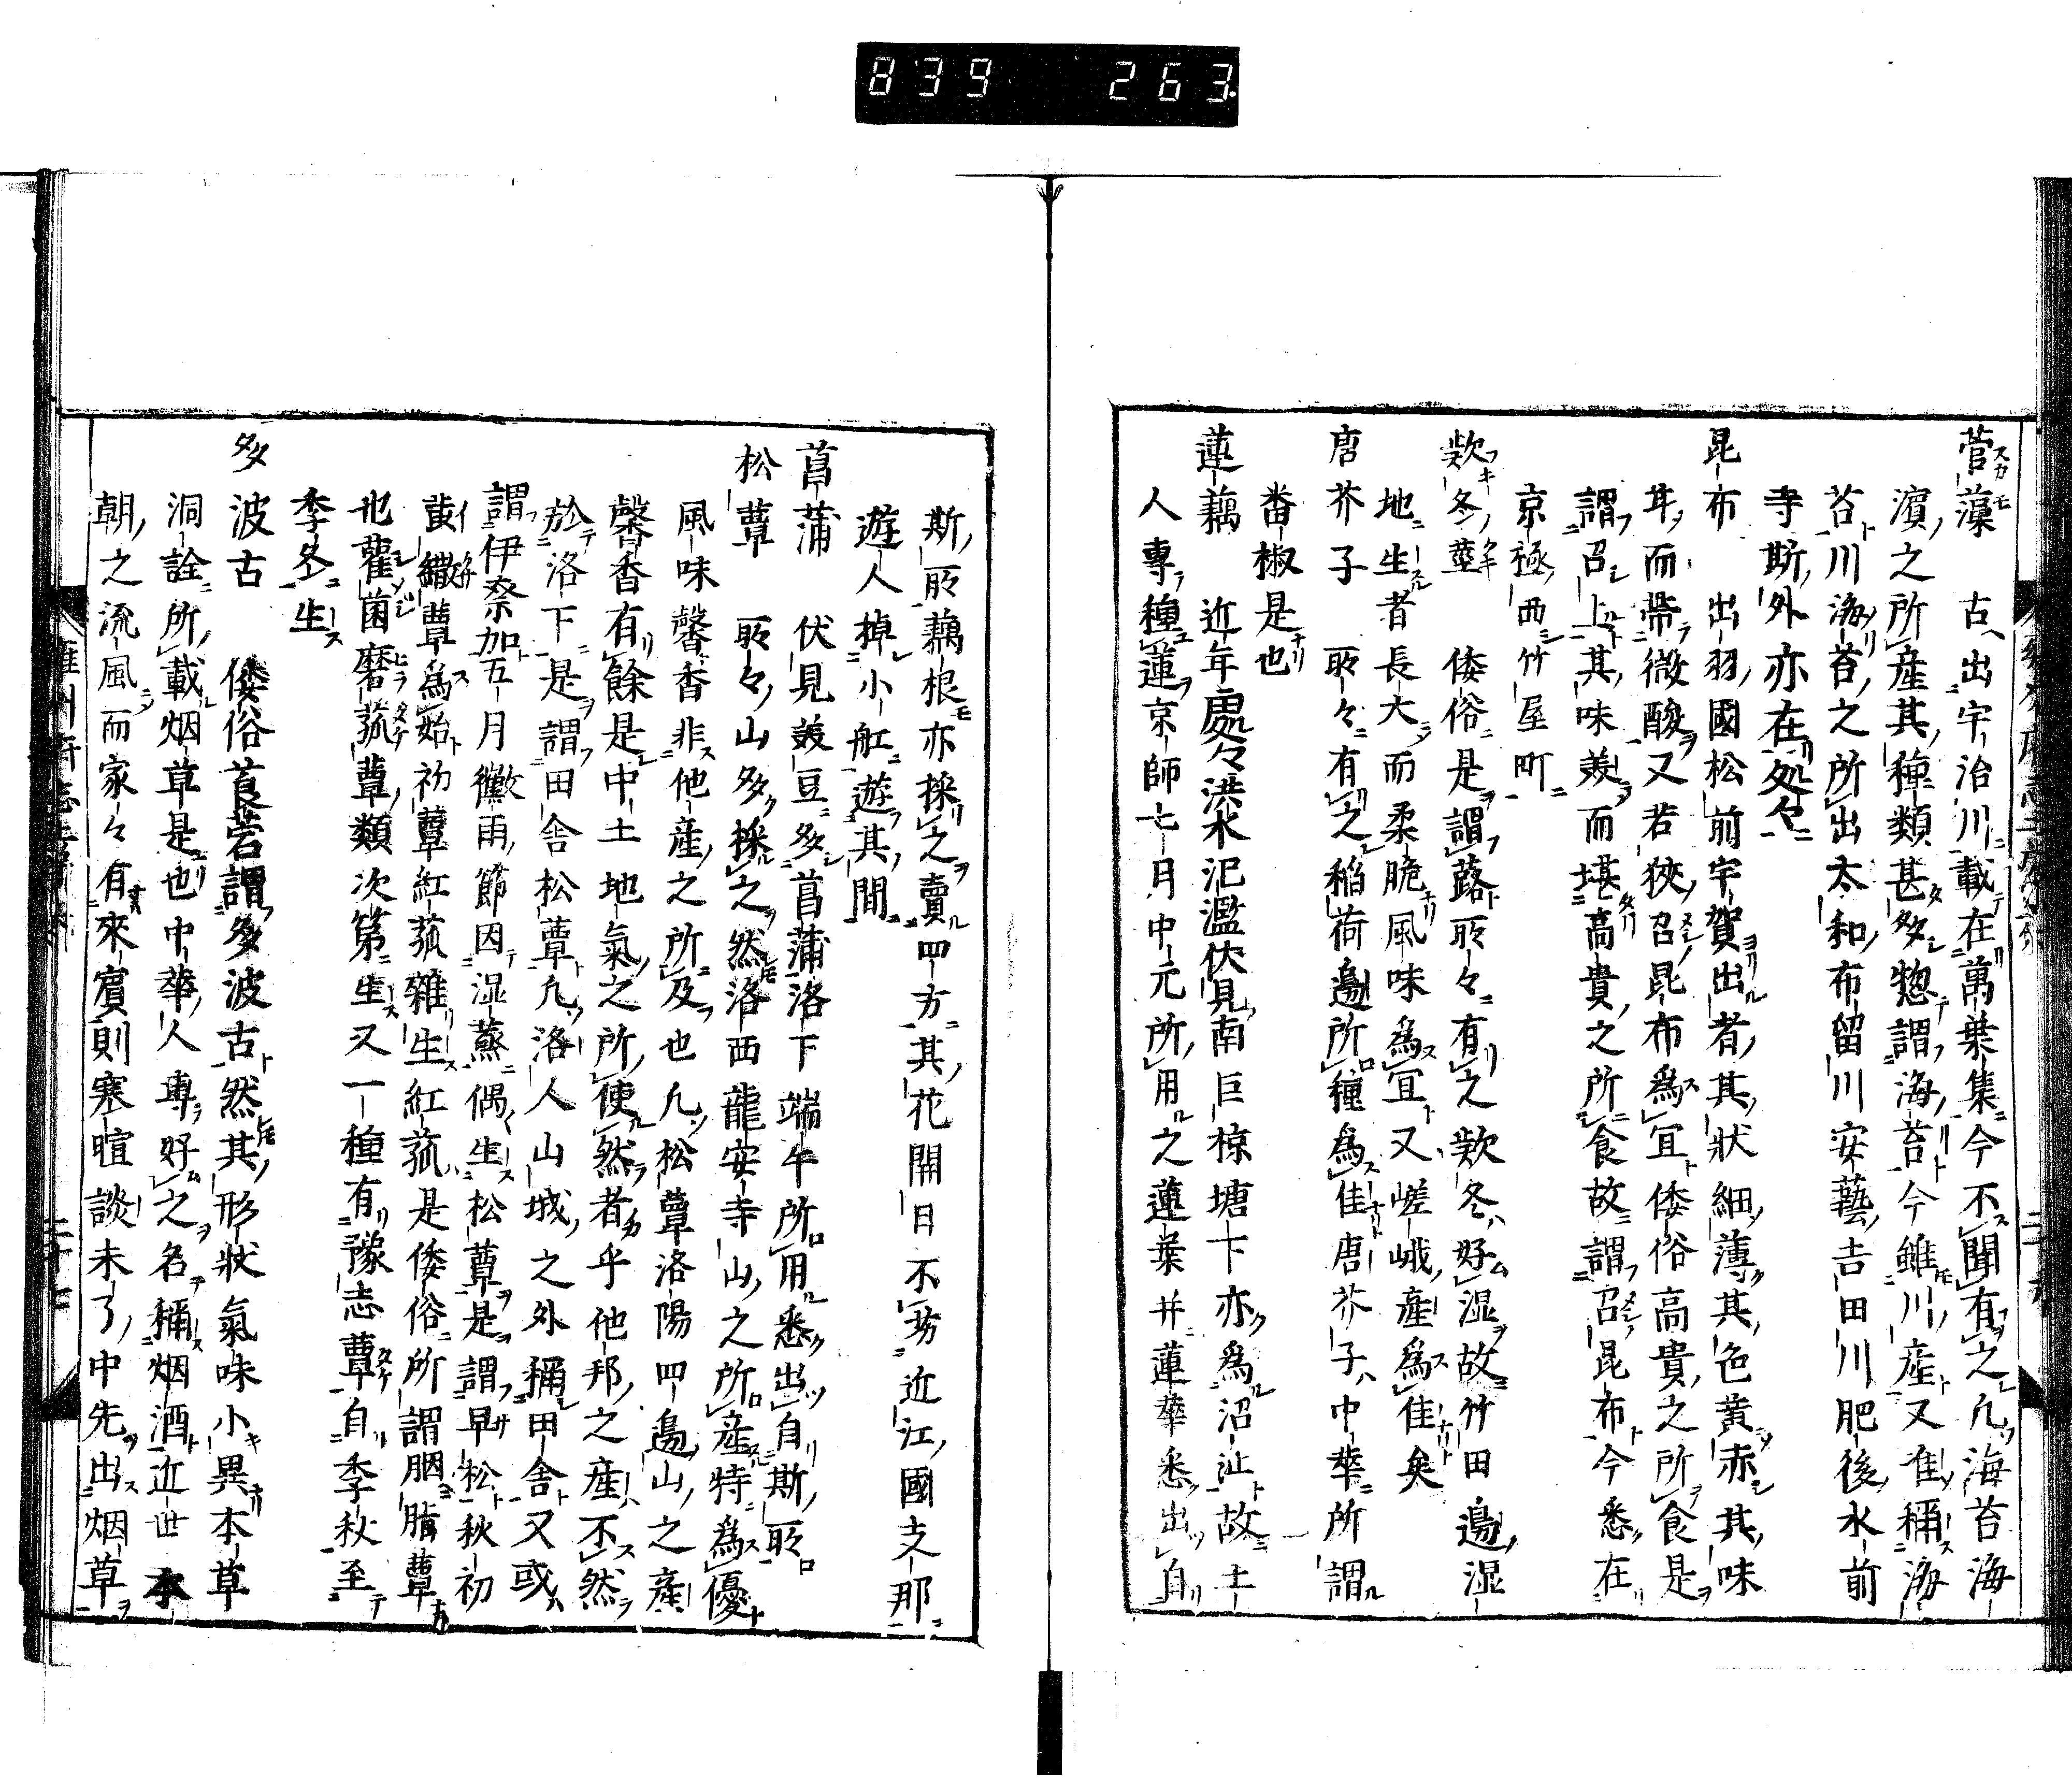 839 263
菅藻 古出宇治川載在萬葉集今不聞有之凡海苔海
濵之所產其種類甚多惣謂海苔今雖川産又准稱海
苔川海苔之所出太和布留川安藝吉田川肥後水前
寺斯外亦在処々
昆布 出羽國松前宇賀出者其狀細薄其色黄赤其味
耳而帶微酸又若狹召昆布爲宜倭俗高貴之所食是
謂召上其味羙而堪高貴之所食故謂召昆布今悉在
京極西竹屋町
欵冬莖 倭俗是謂蕗所々有之欵冬好湿故竹田邉湿
地生者長大而柔脆風味爲宜又嵯峨産爲佳矣
唐芥子 所々有之稲荷邉所種爲佳唐芥子中華所謂
番椒是也
蓮藕 近年處々洪水汜濫伏見南巨椋塘下亦爲沼沚故土
人專種蓮京師七月中元所用之蓮葉并蓮華悉出自
斯所藕根亦採之賣四方其花開日不劣近江國支那
遊人掉小舡遊其間
菖蒲 伏見羙豆多菖蒲洛下端午所用悉出自斯所
松蕈 所々山多採之然洛西龍安寺山之所産特爲優
風味馨香非他産之所及也凡松蕈洛陽四邉山之産
馨香有餘是中土地氣之所使然者乎他邦之産不然
於洛下是謂田舎松蕈凡洛人山城之外稱田舎又或
謂伊奈加五月黴雨節因湿蒸偶生松蕈是謂早松秋初
黄繖蕈爲始初蕈紅菰雜生紅菰是倭俗所謂胭脂蕈
也雚菌磨菰蕈類次第生又一種有豫志蕈自季秋至
季冬生
多波古 倭俗莨菪謂多波古然其形狀氣味小異本草
洞詮所載烟草是也中華人專好之名稱烟酒近世本
朝之流風而家々有來賓則寒暄談未了中先出烟草